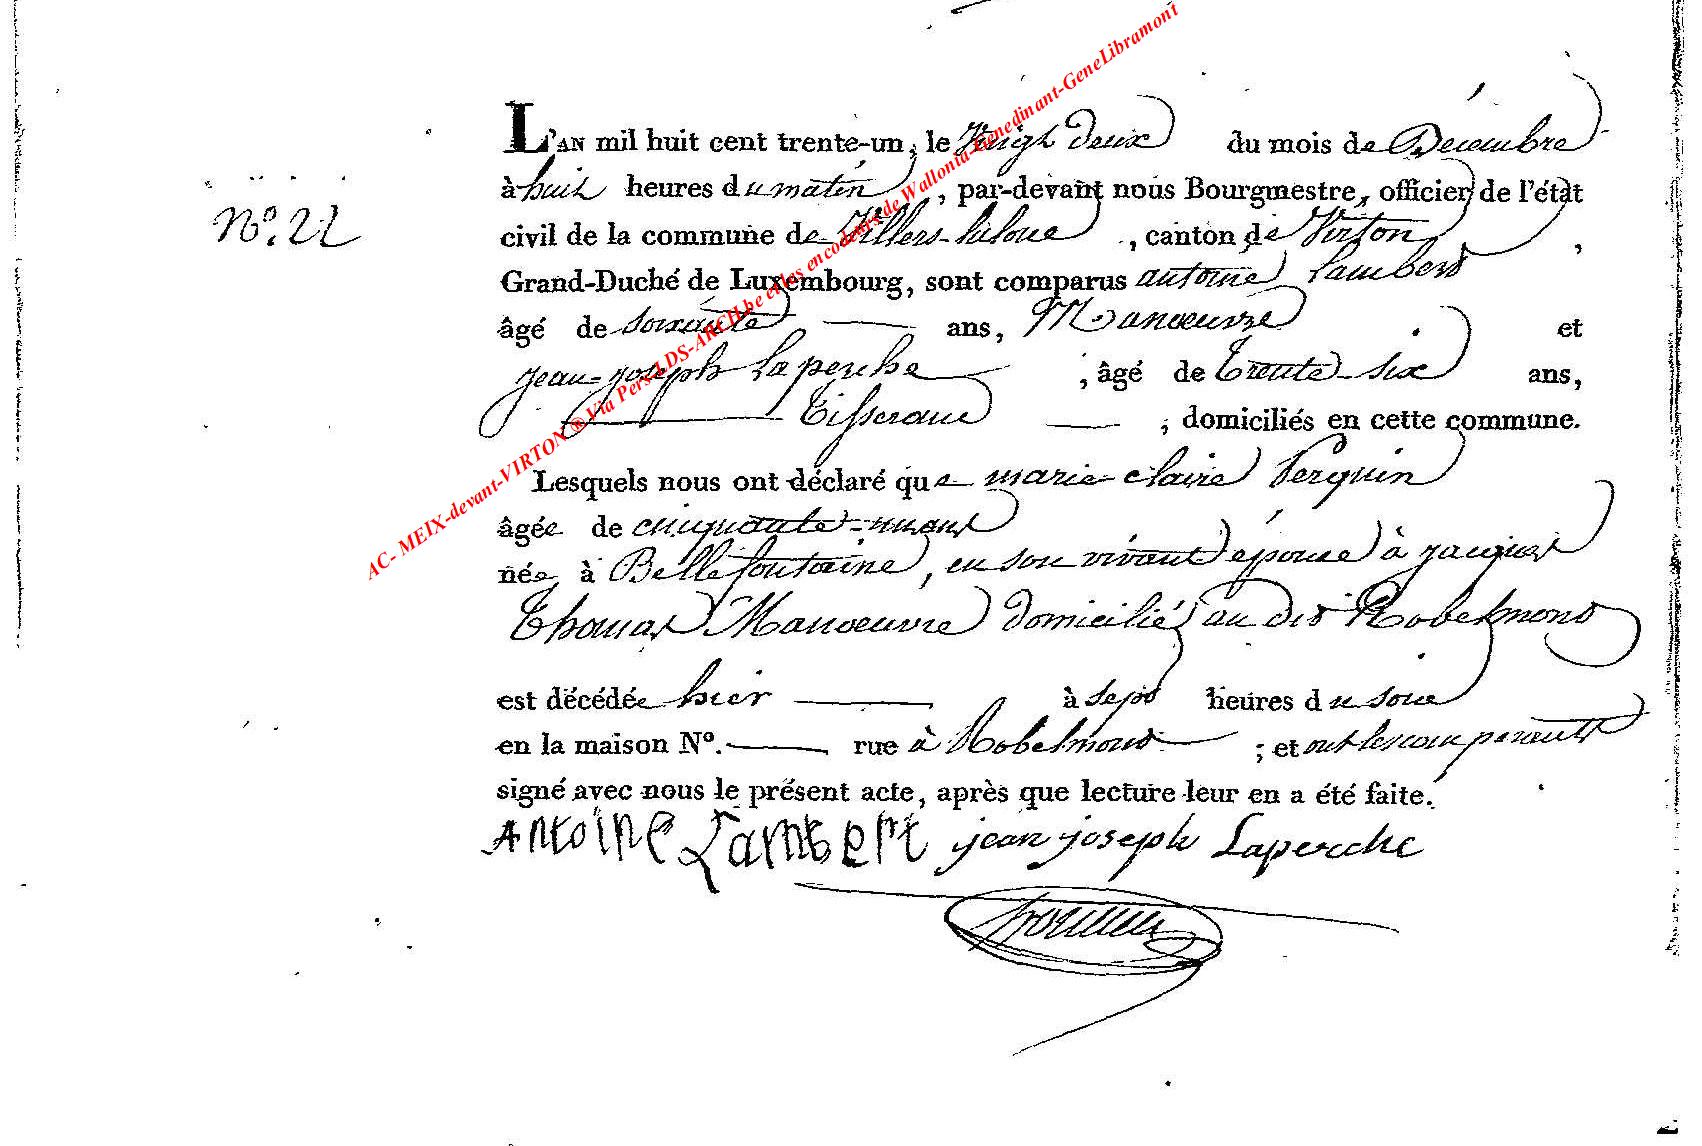 L'AN mil huit cent trente-un, le Vingt deux du mois de Décembre
à huit heures du matin, par-devant nous Bourgmestre, officier de l'état
N.º 22
civil de la commune de Villers-laloue, canton de Virton,
Grand-Duché de Luxembourg, sont comparus antoine Lambert
âgé de soixante ans, Manoeuvre et
jean-joseph Laperche, âgé de trente-six ans,
Tisserand, domiciliés en cette commune.
Lesquels nous ont déclaré que marie-claire Perquin
âgée de cinquante-un ans
née à Bellefontaine, en son vivant épouse à jacques
Thomas Manoeuvre domicilié au dit Robelmont
est décédée hier à sept heures du soir
en la maison Nº. rue à Robelmont ; et ont les comparants
signé avec nous le présent acte, après que lecture leur en a été faite.
Antoine Lambert jean joseph Laperche
AC- MEIX-devant-VIRTON ® Via Pers-LDS-ARCH.be et les encodeurs de Wallonia-Genedinant-GeneLibramont